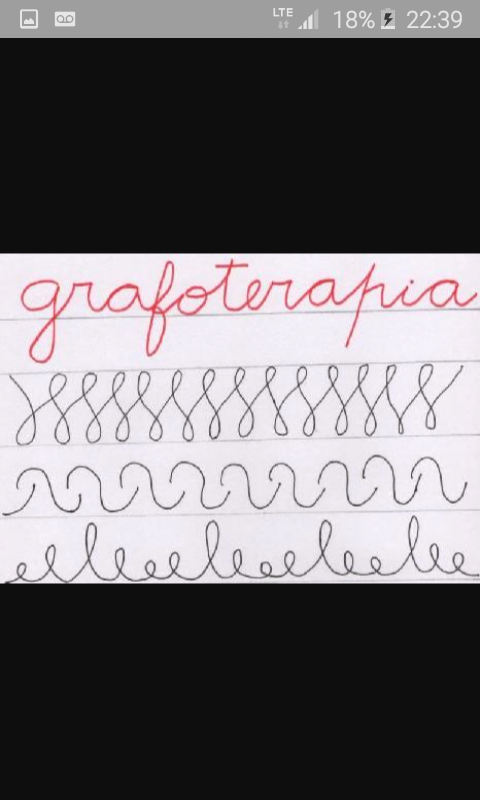 LTE 18% 22:39
grafoterapia